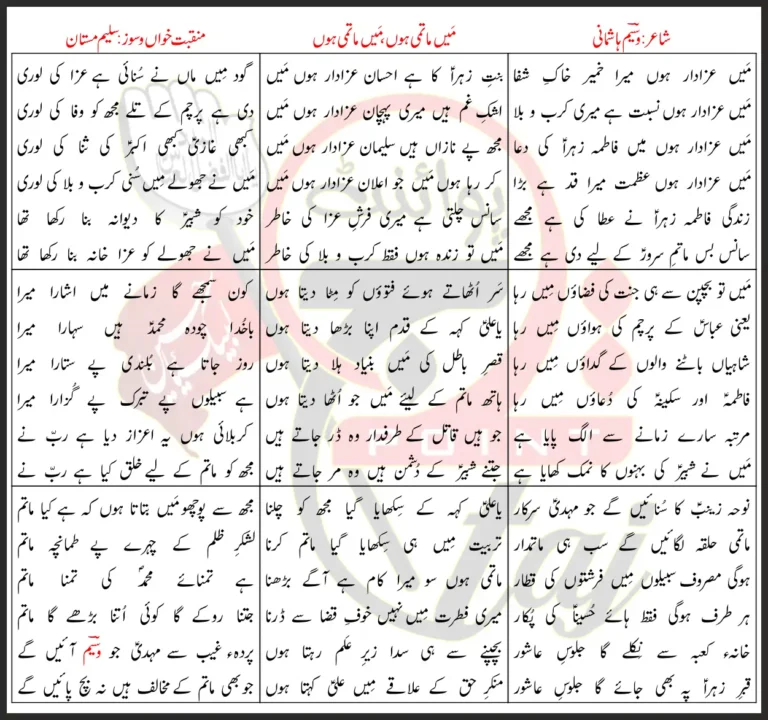 شاعر: وسیم ہاشمانی
مَیں ماتمی ہوں، مَیں ماتمی ہوں
منقبت خواں و سوز: سلیم مستان
مَیں عزادار ہوں میرا خمیر خاکِ شفا
مَیں عزادار ہوں نسبت ہے میری کرب و بلا
مَیں عزادار ہوں مَیں فاطمہ زہراؑ کی دعا
مَیں عزادار ہوں عظمت میرا قد ہے بڑا
زندگی فاطمہ زہراؑ نے عطا کی ہے مجھے
سانس بس ماتمِ سرورؑ کے لیے دی ہے مجھے
بنتِ زہراؑ کا ہے احسان عزادار ہوں مَیں
اشکِ غم ہیں میری پہچان عزادار ہوں مَیں
مجھ پے نازاں ہیں سلیمان عزادار ہوں مَیں
کر رہا ہوں مَیں جو اعلان عزادار ہوں مَیں
سانس چلتی ہے میری فرشِ عزا کی خاطر
مَیں تو زندہ ہوں فقط کرب و بلا کی خاطر
گود مِیں ماں نے سُنائی ہے عزا کی لوری
دی ہے پرچم کے تلے مجھ کو وفا کی لوری
کبھی غازیؑ کبھی اکبرؑ کی ثنا کی لوری
مَیں نے جھولے مِیں سُنی کرب و بلا کی لوری
خود کو شبیرؑ کا دیوانہ بنا رکھا تھا
مَیں نے جھولے کو عزا خانہ بنا رکھا تھا
مَیں تو بچپن سے ہی جنت کی فضاؤں مِیں رہا
یعنی عباسؑ کے پرچم کی ہواؤں مِیں رہا
شاہیاں بانٹنے والوں کے گداؤں مِیں رہا
فاطمہؑ اور سکینہؑ کی دُعاؤں مِیں رہا
مرتبہ سارے زمانے سے الگ پایا ہے
مَیں نے شبیرؑ کی بہنوں کا نمک کھایا ہے
سَر اُٹھاتے ہوئے فتوؤں کو مِٹا دیتا ہوں
یاعلیؑ کہہ کے قدم اپنا بڑھا دیتا ہوں
قصرِ باطل کی مَیں بنیاد ہلا دیتا ہوں
ہاتھ ماتم کے لیئے مَیں جو اُٹھا دیتا ہوں
جو ہیں قاتل کے طرفدار وہ ڈر جاتے ہیں
جتنے شبیرؑ کے دُشمن ہیں وہ مر جاتے ہیں
کون سمجھے گا زمانے مِیں اشارا میرا
باخُدا چودہ محمدؐ ہیں سہارا میرا
روز جاتا ہے بُلندی پے ستارا میرا
ہے سبیلوں پے تبرک پے گُزارا میرا
کربلائی ہوں یہ اعزاز دیا ہے ربّ نے
مجھ کو ماتم کے لیے خلق کیا ہے ربّ نے
نوحہ زینبؑ کا سُنائیں گے جو مہدیؑ سرکار
ماتمی حلقہ لگائیں گے سب ہی ماتمدار
ہوگی مصروف سبیلوں مِیں فرشتوں کی قطار
ہر طرف ہوگی فقط ہائے حُسیناؑ کی پُکار
خانہء کعبہ سے نکلے گا جلوسِ عاشور
قبرِ زہراؑ پہ بھی جائے گا جلوسِ عاشور
یاعلیؑ کہہ کے سِکھایا گیا مجھ کو چلنا
تربیت مِیں ہی سِکھایا گیا ماتم کرنا
ماتمی ہوں سو میرا کام ہے آگے بڑھنا
میری فطرت مِیں نہیں خوفِ قضا سے ڈرنا
بچپنے سے ہی سدا زیرِ عَلم رہتا ہوں
منکرِ حق کے علاقے مِیں علیؑ کہتا ہوں
مجھ سے پوچھو مَیں بتاتا ہوں کہ ہے کیا ماتم
لشکرِ ظلم کے چہرے پے طمانچہ ماتم
ہے تمنائے محمدؐ کی تمنا ماتم
جتنا روکے گا کوئی اُتنا بڑھے گا ماتم
پردہء غیب سے مہدیؑ جو وسیم آئیں گے
جو بھی ماتم کے مخالف ہیں نہ بچ پائیں گے
POINT
taj